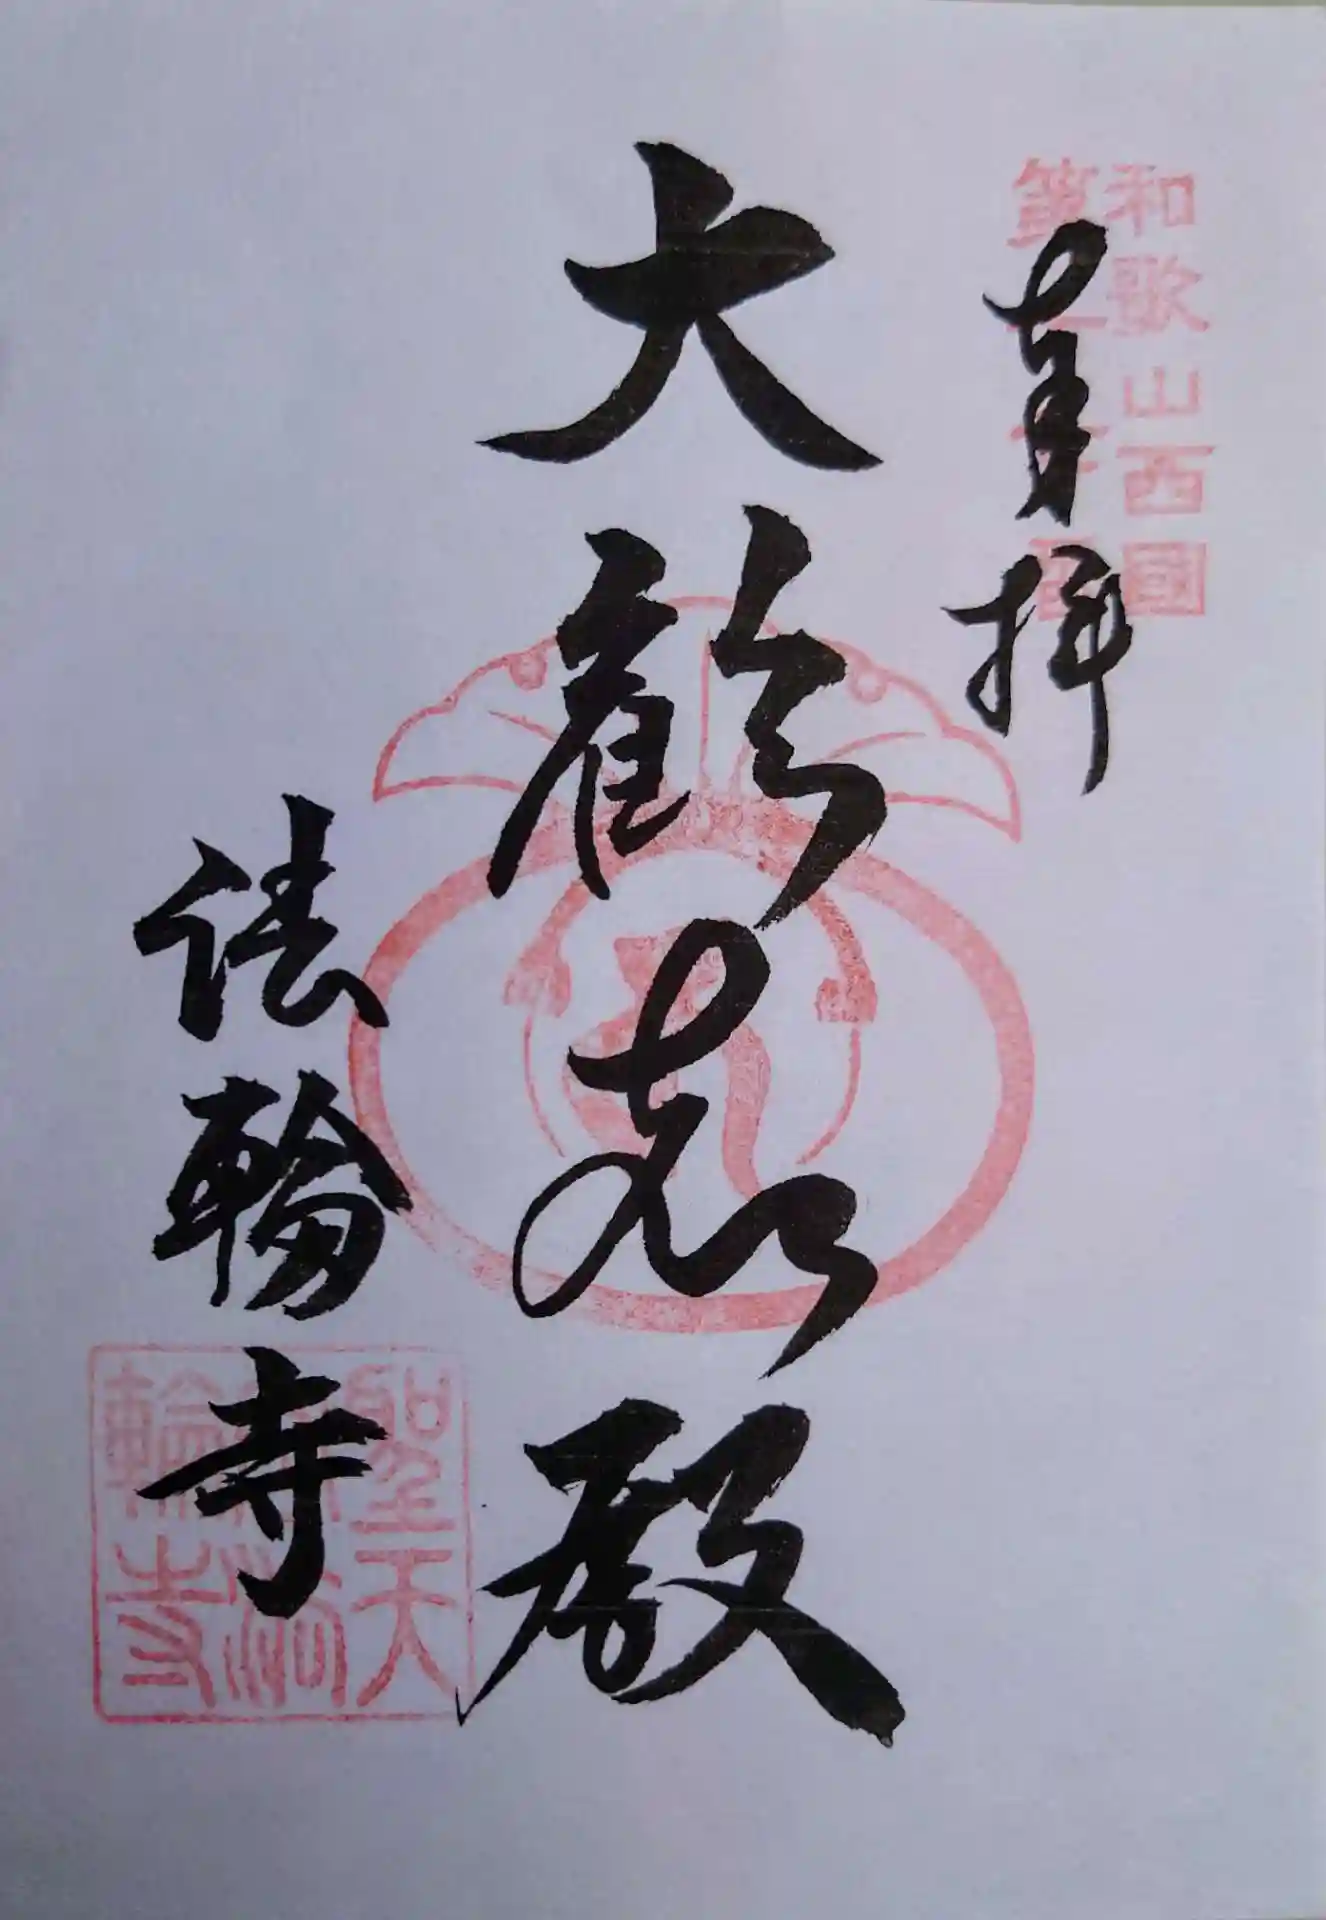 和歌山西國
奉拝
大歓喜殿
法輪寺
聖天
宮法
輪寺